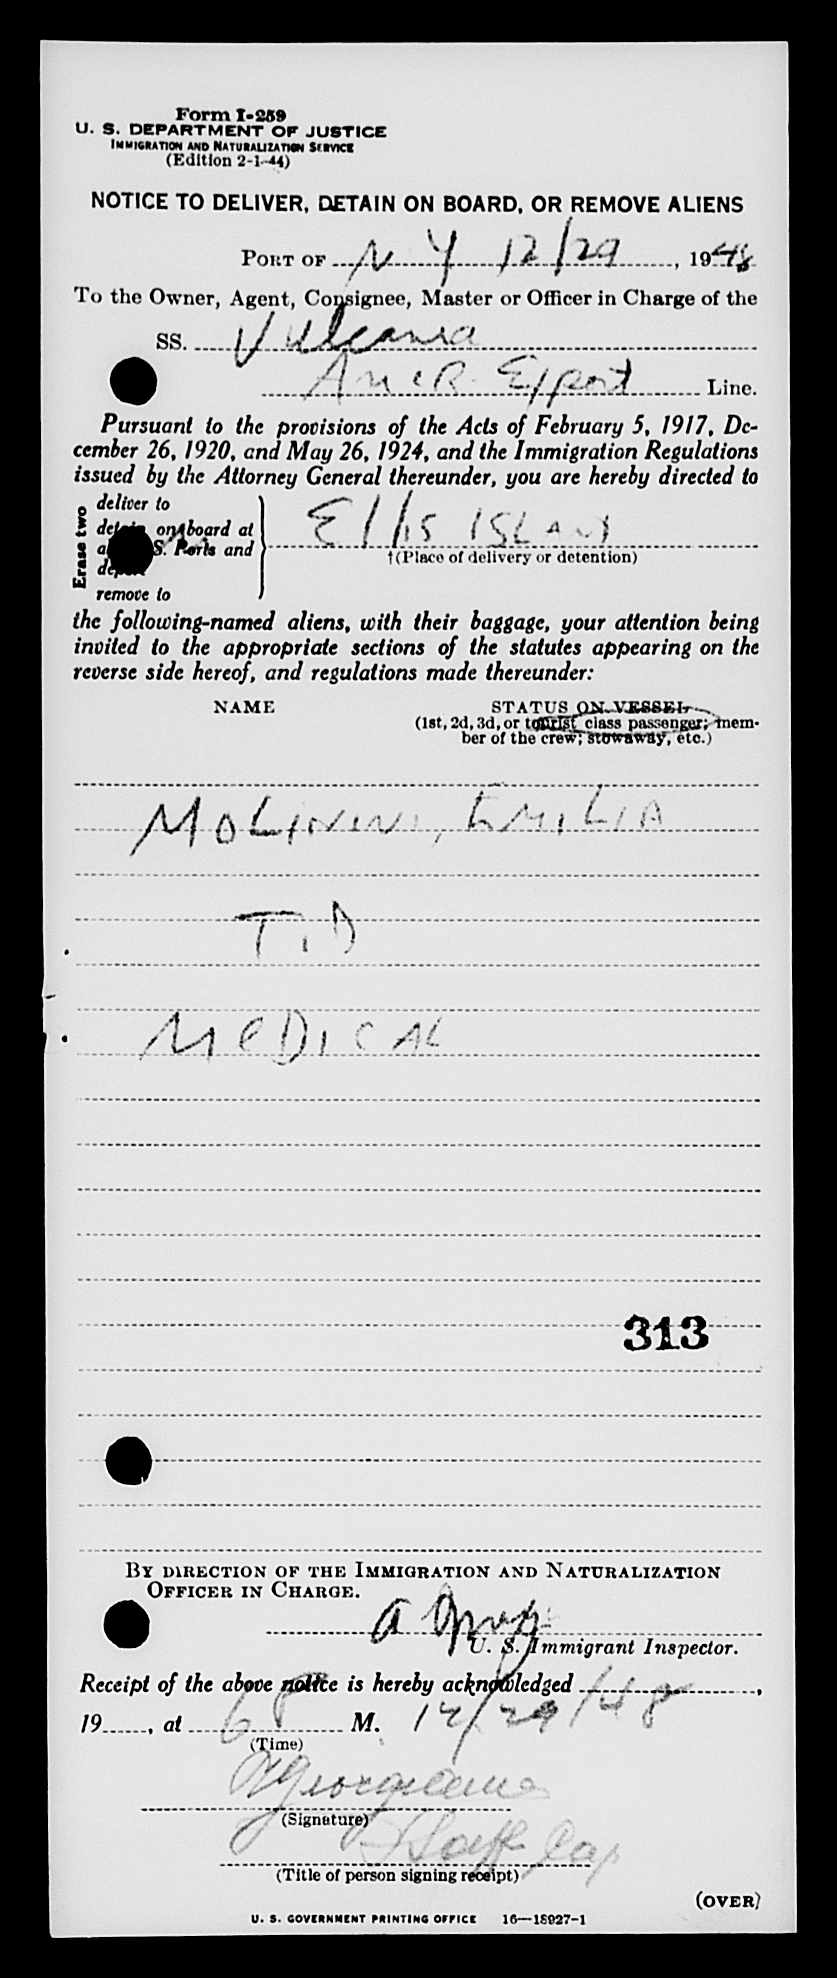 Form I-259
U. S. DEPARTMENT OF JUSTICE
IMMIGRATION AND NATURALIZATION SERVICE
(Edition 2-1-44)
NOTICE TO DELIVER, DETAIN ON BOARD, OR REMOVE ALIENS
PORT OF N Y 12/29, 1948
To the Owner, Agent, Consignee, Master or Officer in Charge of the
SS. Vulcania
Amer. Export Line.
Pursuant to the provisions of the Acts of February 5, 1917, De-
cember 26, 1920, and May 26, 1924, and the Immigration Regulations
issued by the Attorney General thereunder, you are hereby directed to
Erase two
deliver to
detain on board at
S. Ports and
remove to
Ellis Island
†(Place of delivery or detention)
the following-named aliens, with their baggage, your attention being
invited to the appropriate sections of the statutes appearing on the
reverse side hereof, and regulations made thereunder:
NAME STATUS ON VESSEL
(1st, 2d, 3d, or tourist class passenger; mem-
ber of the crew; stowaway, etc.)
MOLININI, EMILIA
T.D
MEDICAL
313
BY DIRECTION OF THE IMMIGRATION AND NATURALIZATION
OFFICER IN CHARGE.
U. S. Immigrant Inspector.
Receipt of the above notice is hereby acknowledged ,
19 , at 6 P M. 12/29/48
(Time)
(Signature)
(Title of person signing receipt)
(OVER)
U. S. GOVERNMENT PRINTING OFFICE 16—18927-1